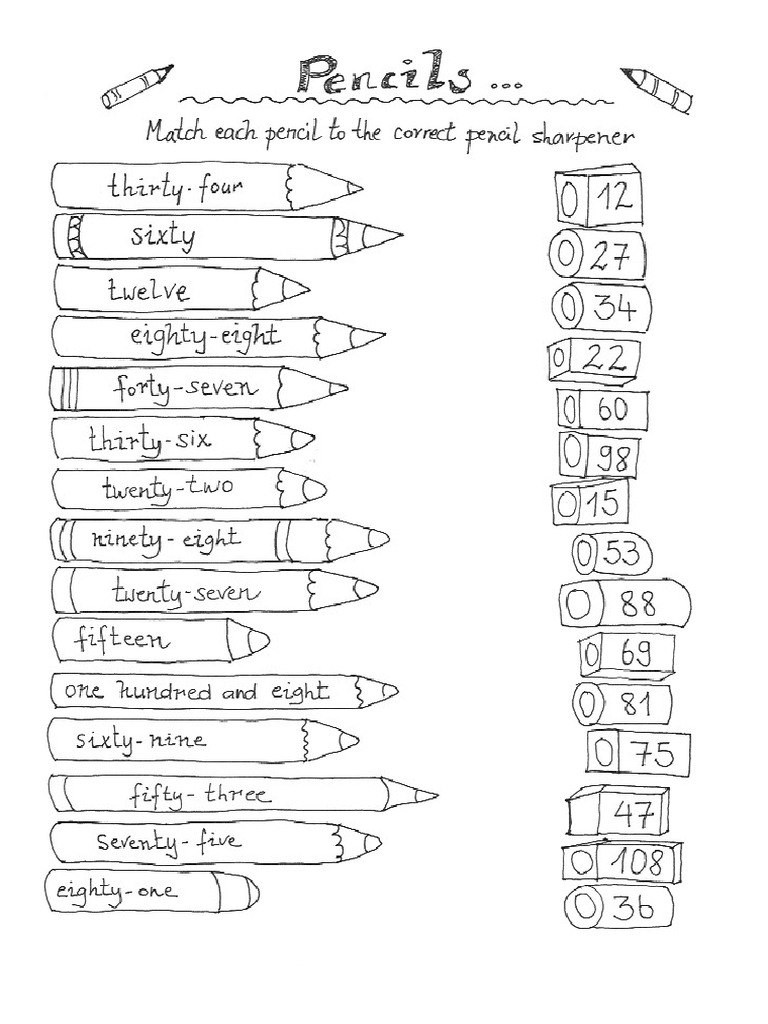 Pencils...
Match each pencil to the correct pencil sharpener
thirty-four
sixty
twelve
eighty-eight
forty-seven
thirty-six
twenty-two
ninety-eight
twenty-seven
fifteen
one hundred and eight
sixty-nine
fifty-three
seventy-five
eighty-one
12
27
34
22
60
98
15
53
88
69
81
75
47
108
36